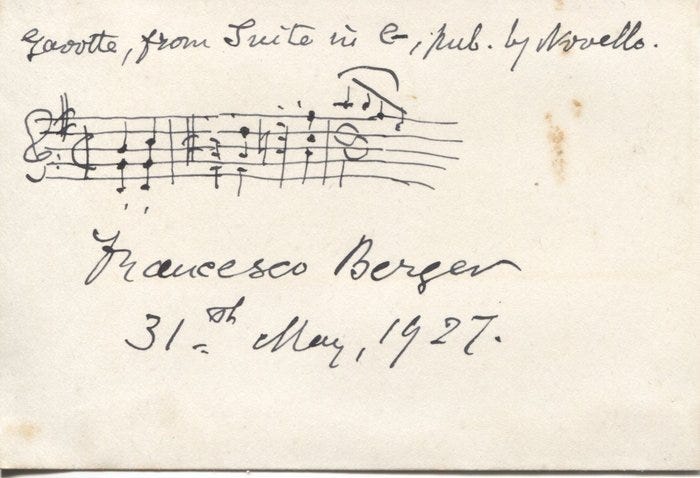 Gavotte, from Suite in G, pub. by Novello.
Francesco Berger
31.th May, 1927.